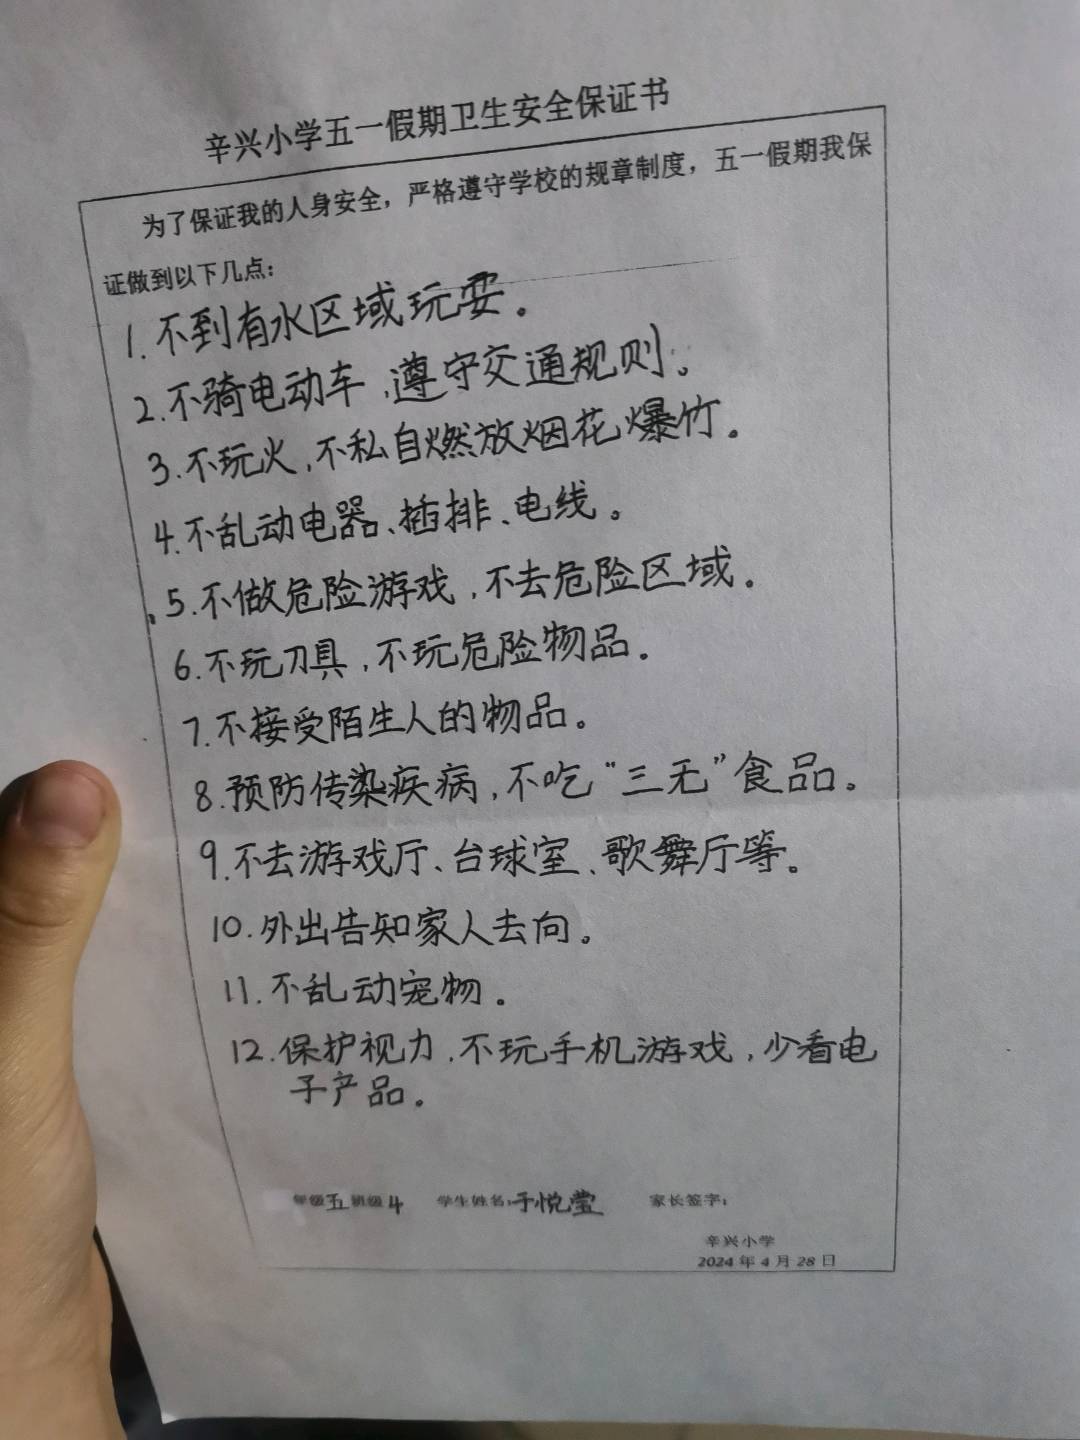 辛兴小学五一假期卫生安全保证书
为了保证我的人身安全，严格遵守学校的规章制度，五一假期我保
证做到以下几点：
1.不到有水区域玩耍。
2.不骑电动车，遵守交通规则。
3.不玩火，不私自燃放烟花爆竹。
4.不乱动电器、插排、电线。
5.不做危险游戏，不去危险区域。
6.不玩刀具，不玩危险物品。
7.不接受陌生人的物品。
8.预防传染疾病，不吃“三无”食品。
9.不去游戏厅、台球室、歌舞厅等。
10.外出告知家人去向。
11.不乱动宠物。
12.保护视力，不玩手机游戏，少看电
子产品。
年级五 班级4 学生姓名：于悦莹 家长签字：
辛兴小学
2024年4月28日